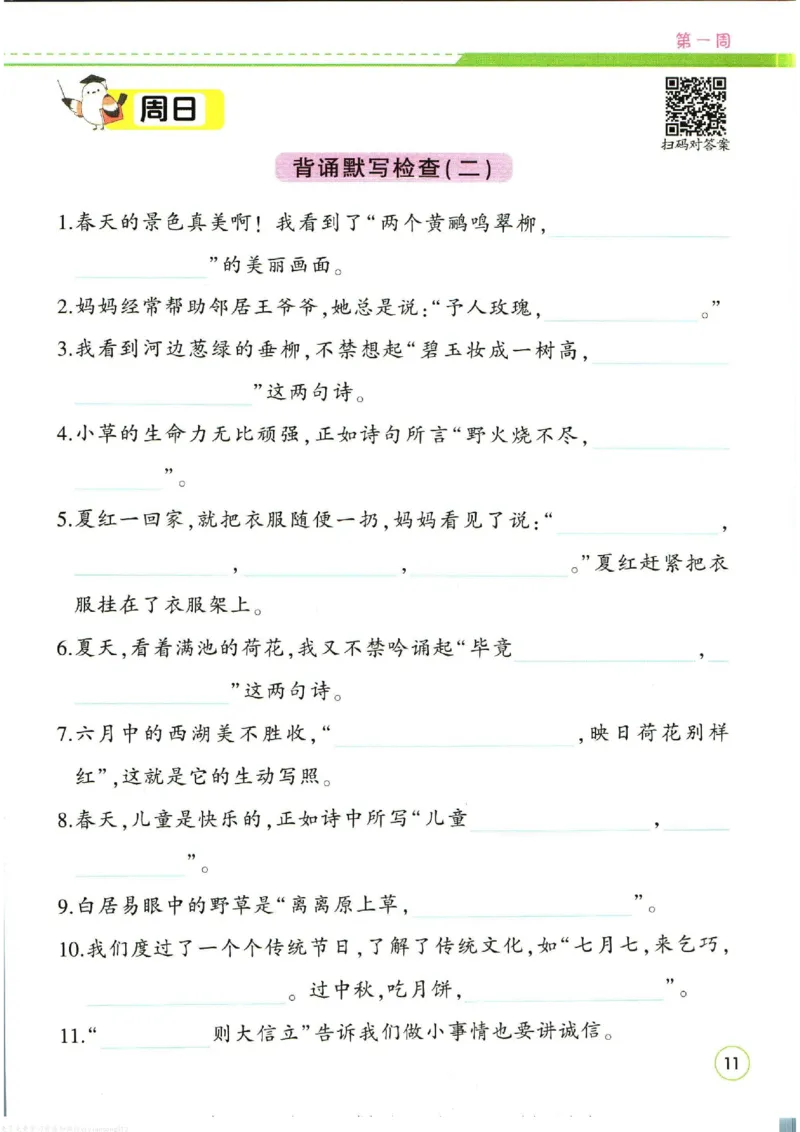 第一周
周日
扫码对答案
背诵默写检查(二)
1.春天的景色真美啊！我看到了“两个黄鹂鸣翠柳,
”的美丽画面。
2.妈妈经常帮助邻居王爷爷,她总是说:“予人玫瑰, 。”
3.我看到河边葱绿的垂柳,不禁想起“碧玉妆成一树高,
”这两句诗。
4.小草的生命力无比顽强,正如诗句所言“野火烧不尽,
”。
5.夏红一回家,就把衣服随便一扔,妈妈看见了说:“ ,
, , 。”夏红赶紧把衣
服挂在了衣服架上。
6.夏天,看着满池的荷花,我又不禁吟诵起“毕竟 ,
”这两句诗。
7.六月中的西湖美不胜收,“ ,映日荷花别样
红”,这就是它的生动写照。
8.春天,儿童是快乐的,正如诗中所写“儿童 ,
”。
9.白居易眼中的野草是“离离原上草, ”。
10.我们度过了一个个传统节日,了解了传统文化,如“七月七,来乞巧,
。过中秋,吃月饼, ”。
11.“ 则大信立”告诉我们做小事情也要讲诚信。
11